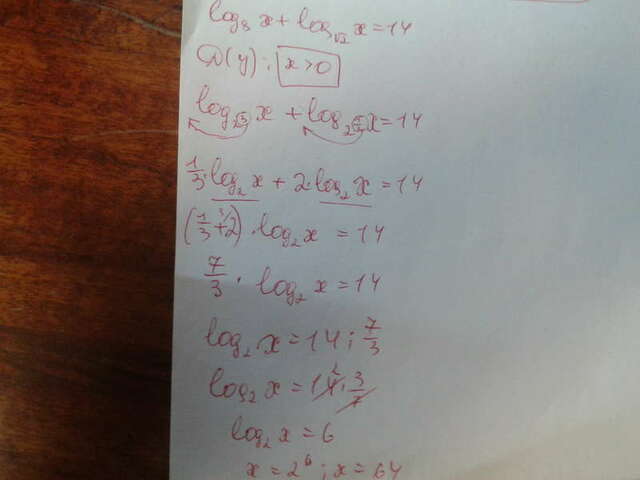 log₈ x + log_√2 x = 14
D(y): x > 0
log_2³ x + log_2^½ x = 14
1/3 · log₂ x + 2 · log₂ x = 14
(1/3 + 2^3/) · log₂ x = 14
7/3 · log₂ x = 14
log₂ x = 14 : 7/3
log₂ x = 14² · 3/7
log₂ x = 6
x = 2⁶; x = 64